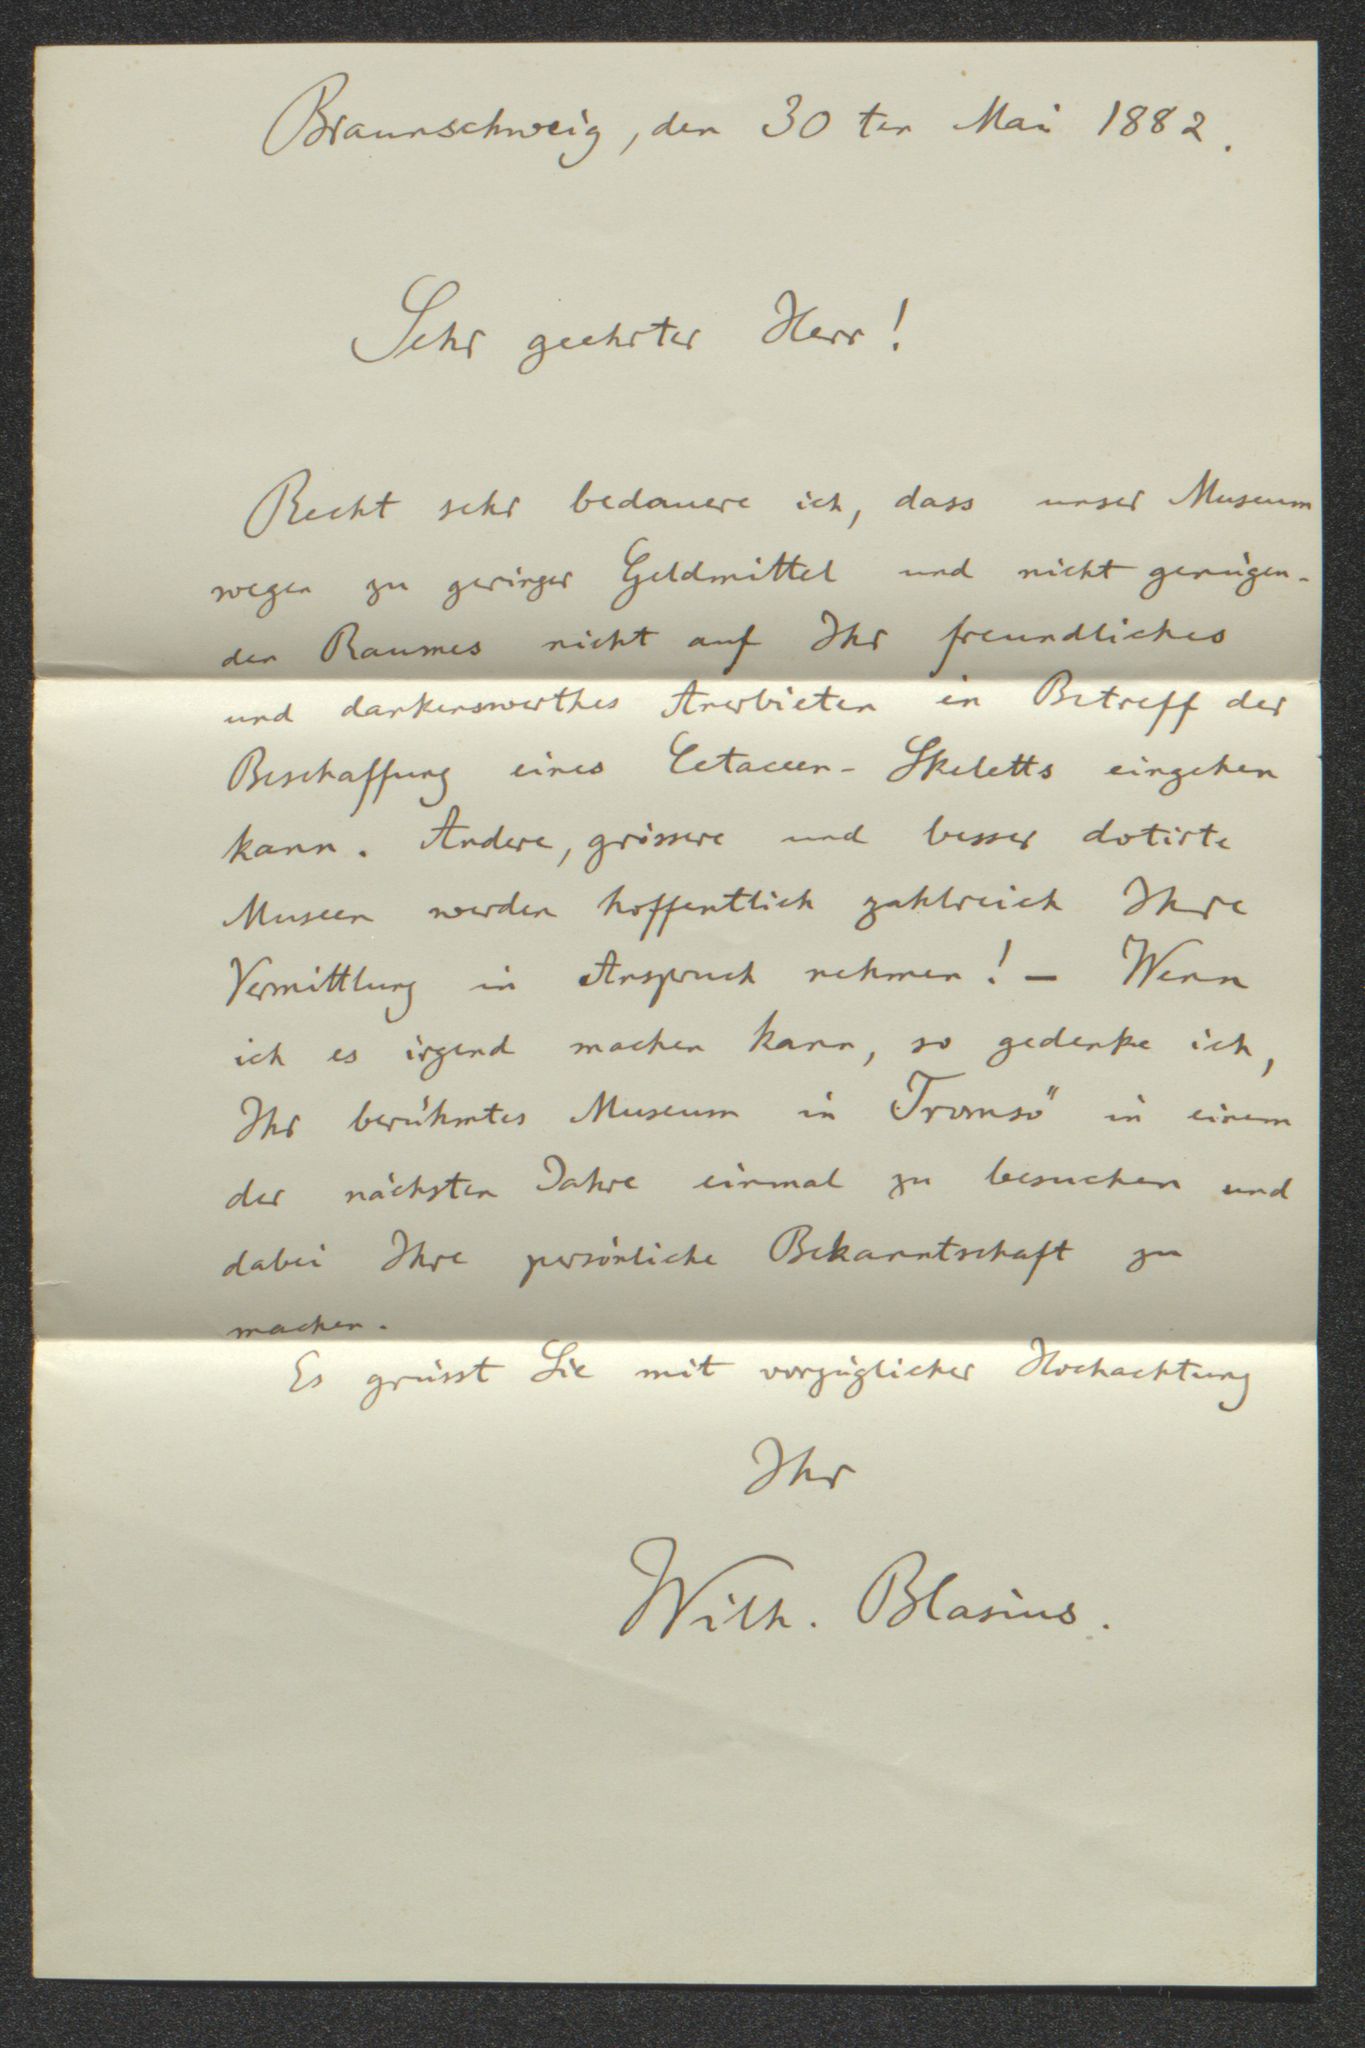 Braunschweig, den 30ten Mai 1882.
Sehr geehrter Herr!
Recht sehr bedauere ich, dass unser Museum
wegen zu geringer Geldmittel und nicht genügen-
den Raumes nicht auf Ihr freundliches
und dankenswerthes Anerbieten in Betreff der
Beschaffung eines Cetaceen-Skeletts eingehen
kann. Andere, grössere und besser dotirte
Museen werden hoffentlich zahlreich Ihre
Vermittlung in Anspruch nehmen! – Wenn
ich es irgend machen kann, so gedenke ich,
Ihr berühmtes Museum in Tromsö in einem
der nächsten Jahre einmal zu besuchen und
dabei Ihre persönliche Bekanntschaft zu
machen.
Es grüsst Sie mit vorzüglicher Hochachtung
Ihr
Wilh. Blasius.